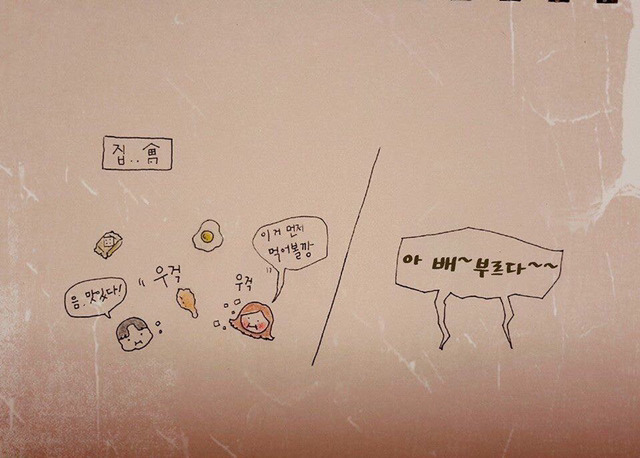 집..
음, 맛있다!
우걱
이거 먼저
먹어볼깡
우걱
아 배~부르다~~